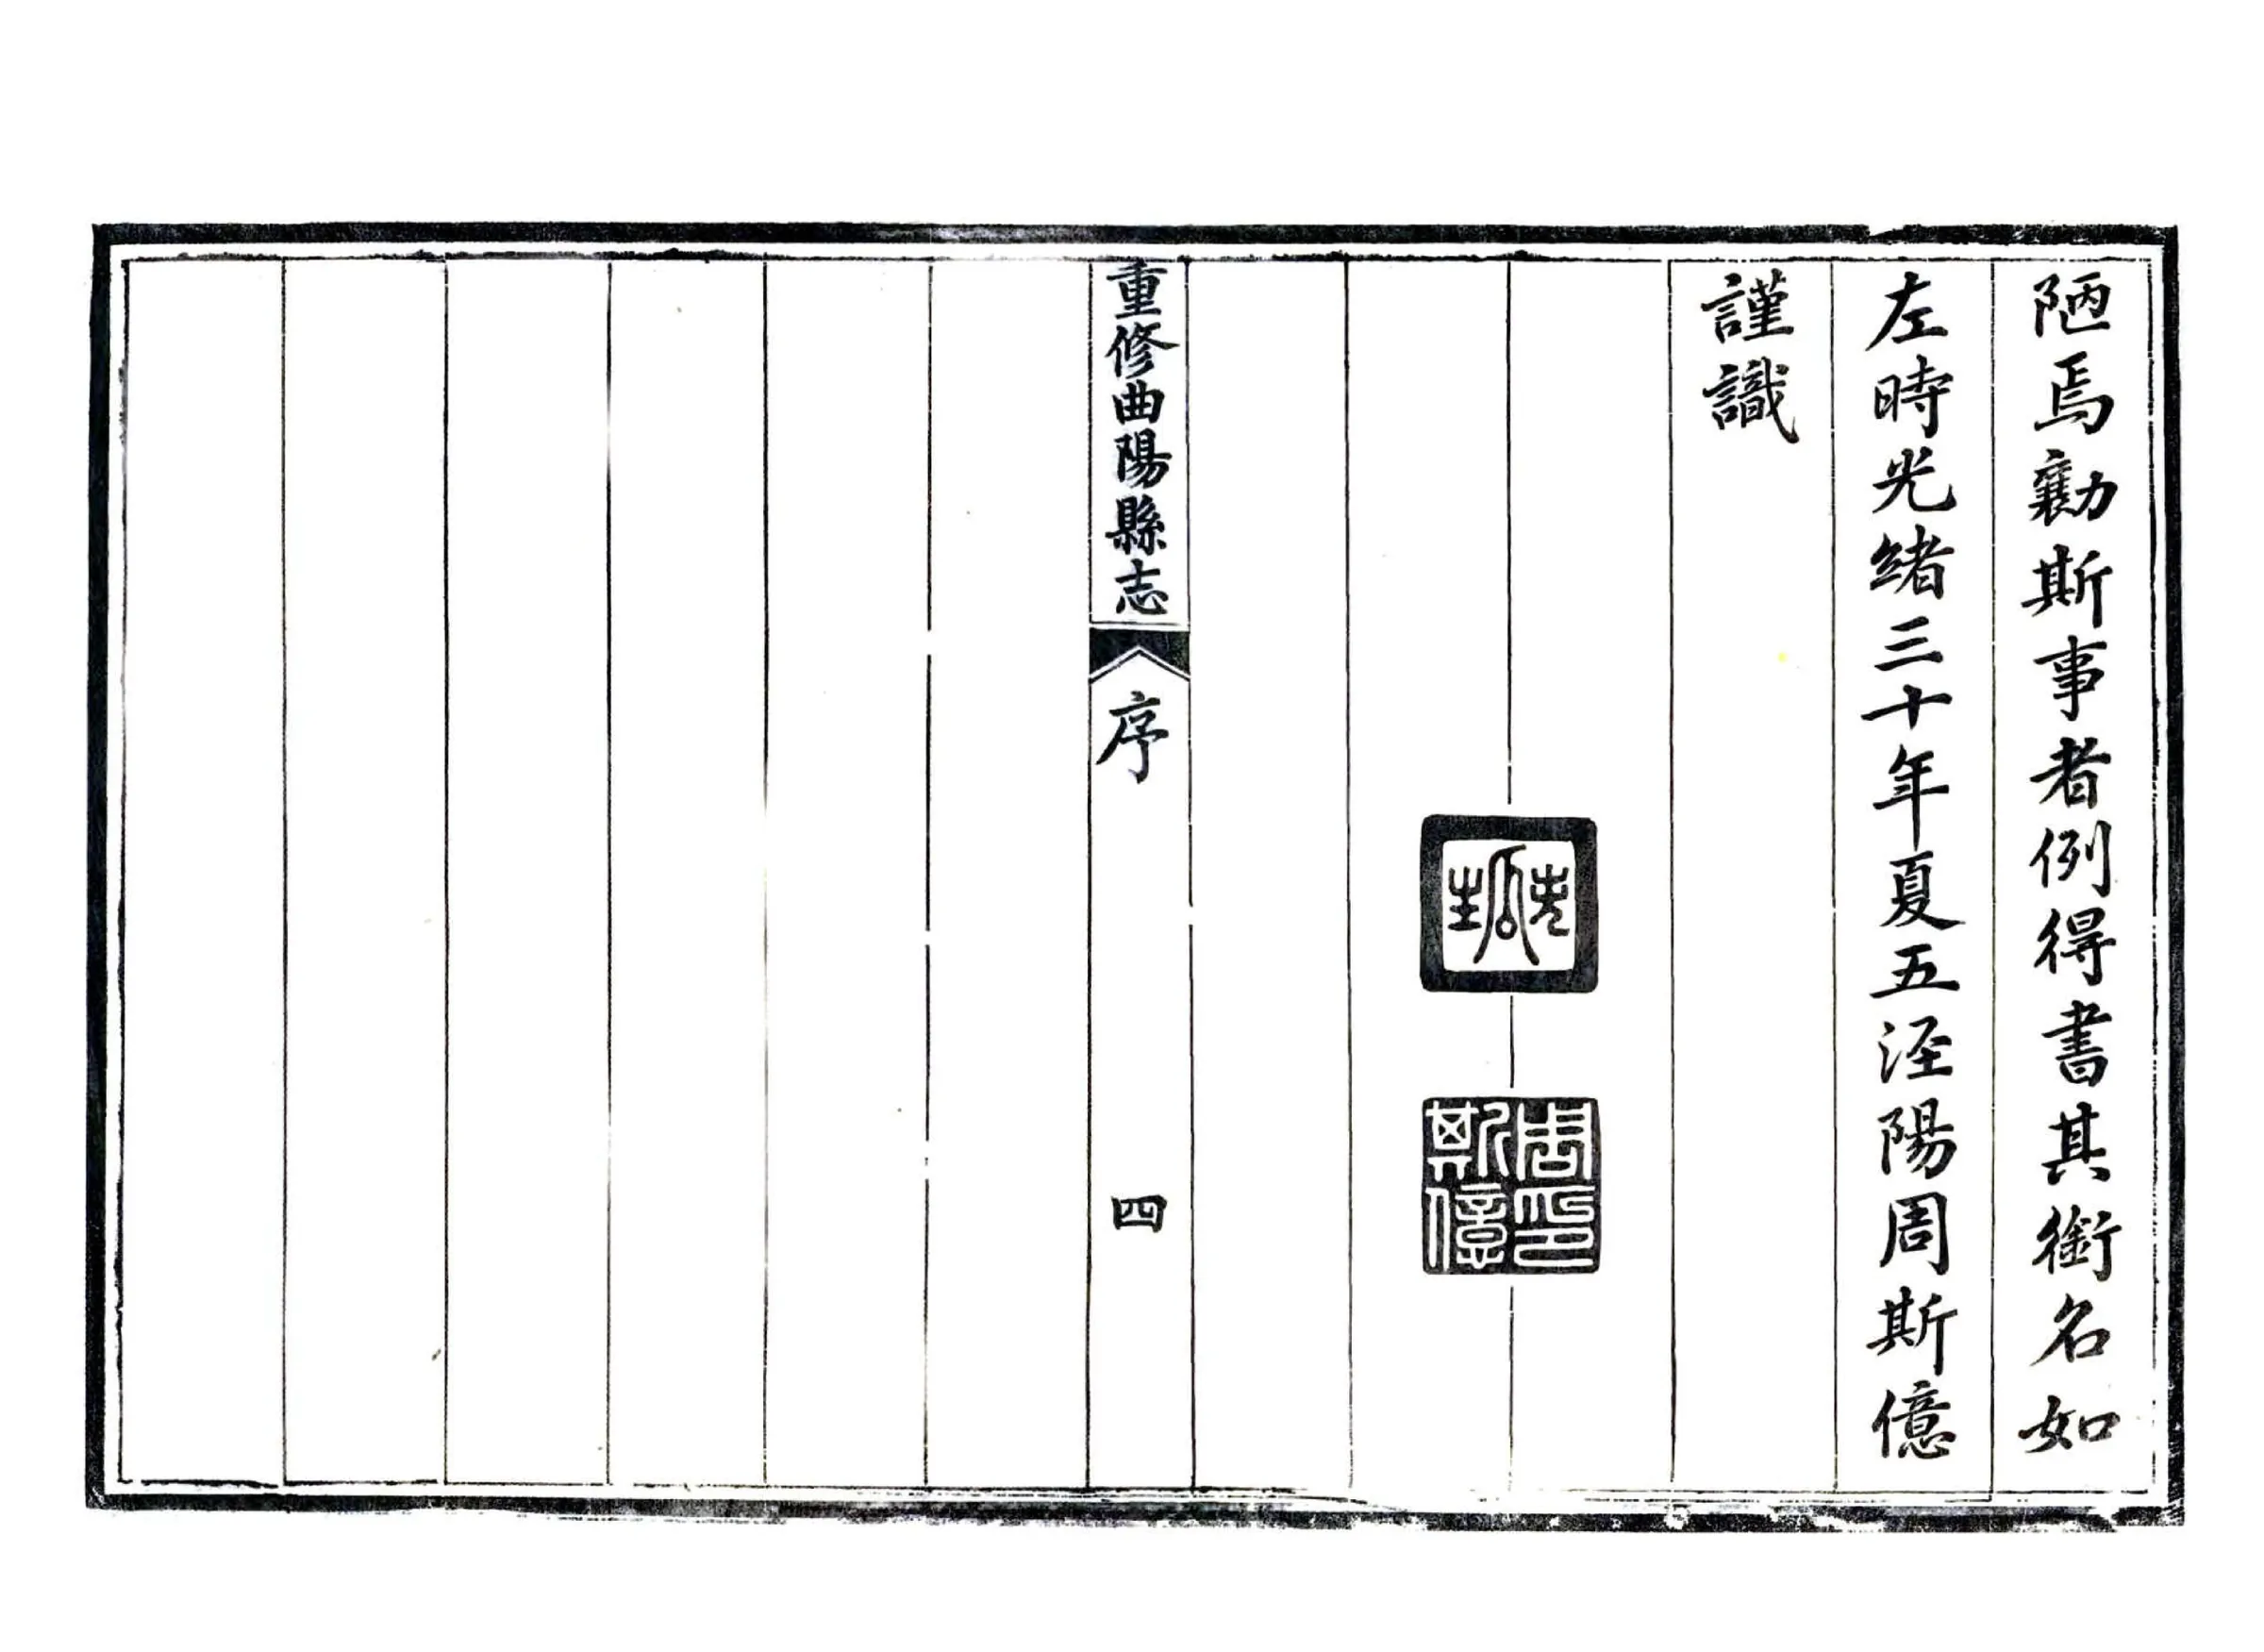 陋焉勷斯事者例得書其銜名如
左時光緒三十年夏五涇陽周斯億
謹識
周印
斯億
重修曲陽縣志
序
四